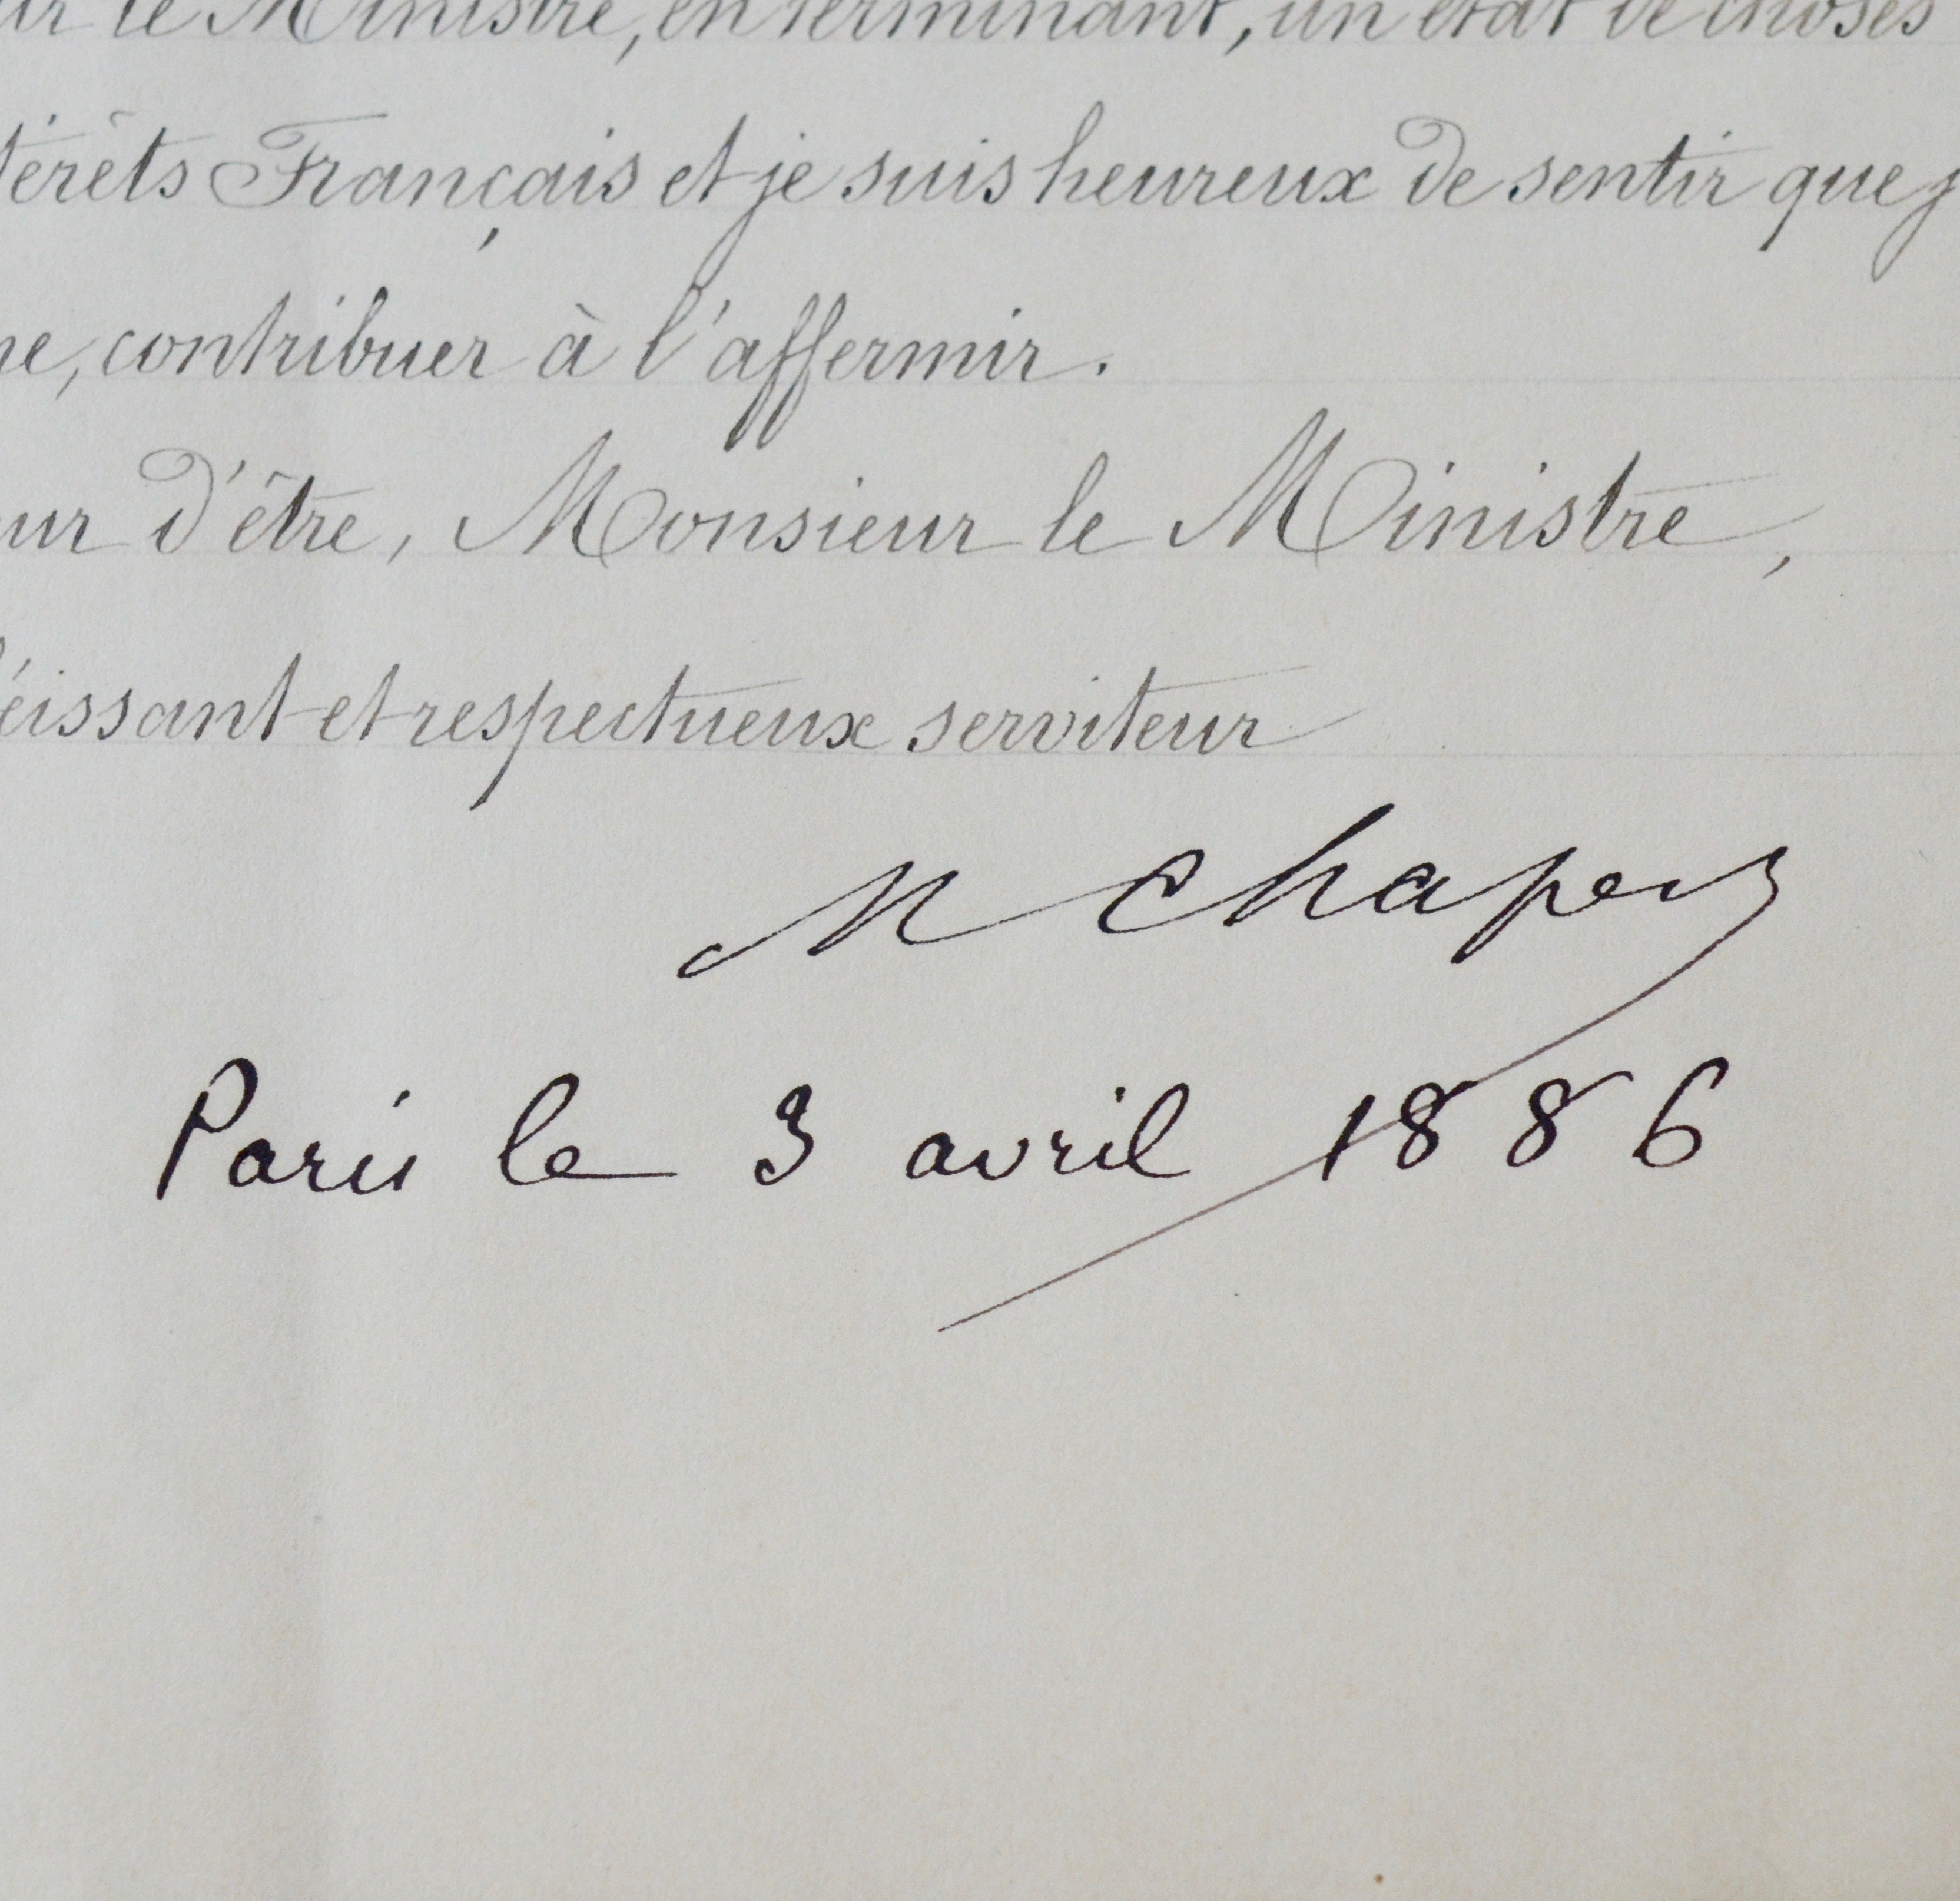 ur le Ministre, en terminant, un état de choses
térêts Français et je suis heureux de sentir que j
ne, contribuer à l'affermir.
ur d'être, Monsieur le Ministre,
éissant et respectueux serviteur
M Chaper
Paris le 3 avril 1886